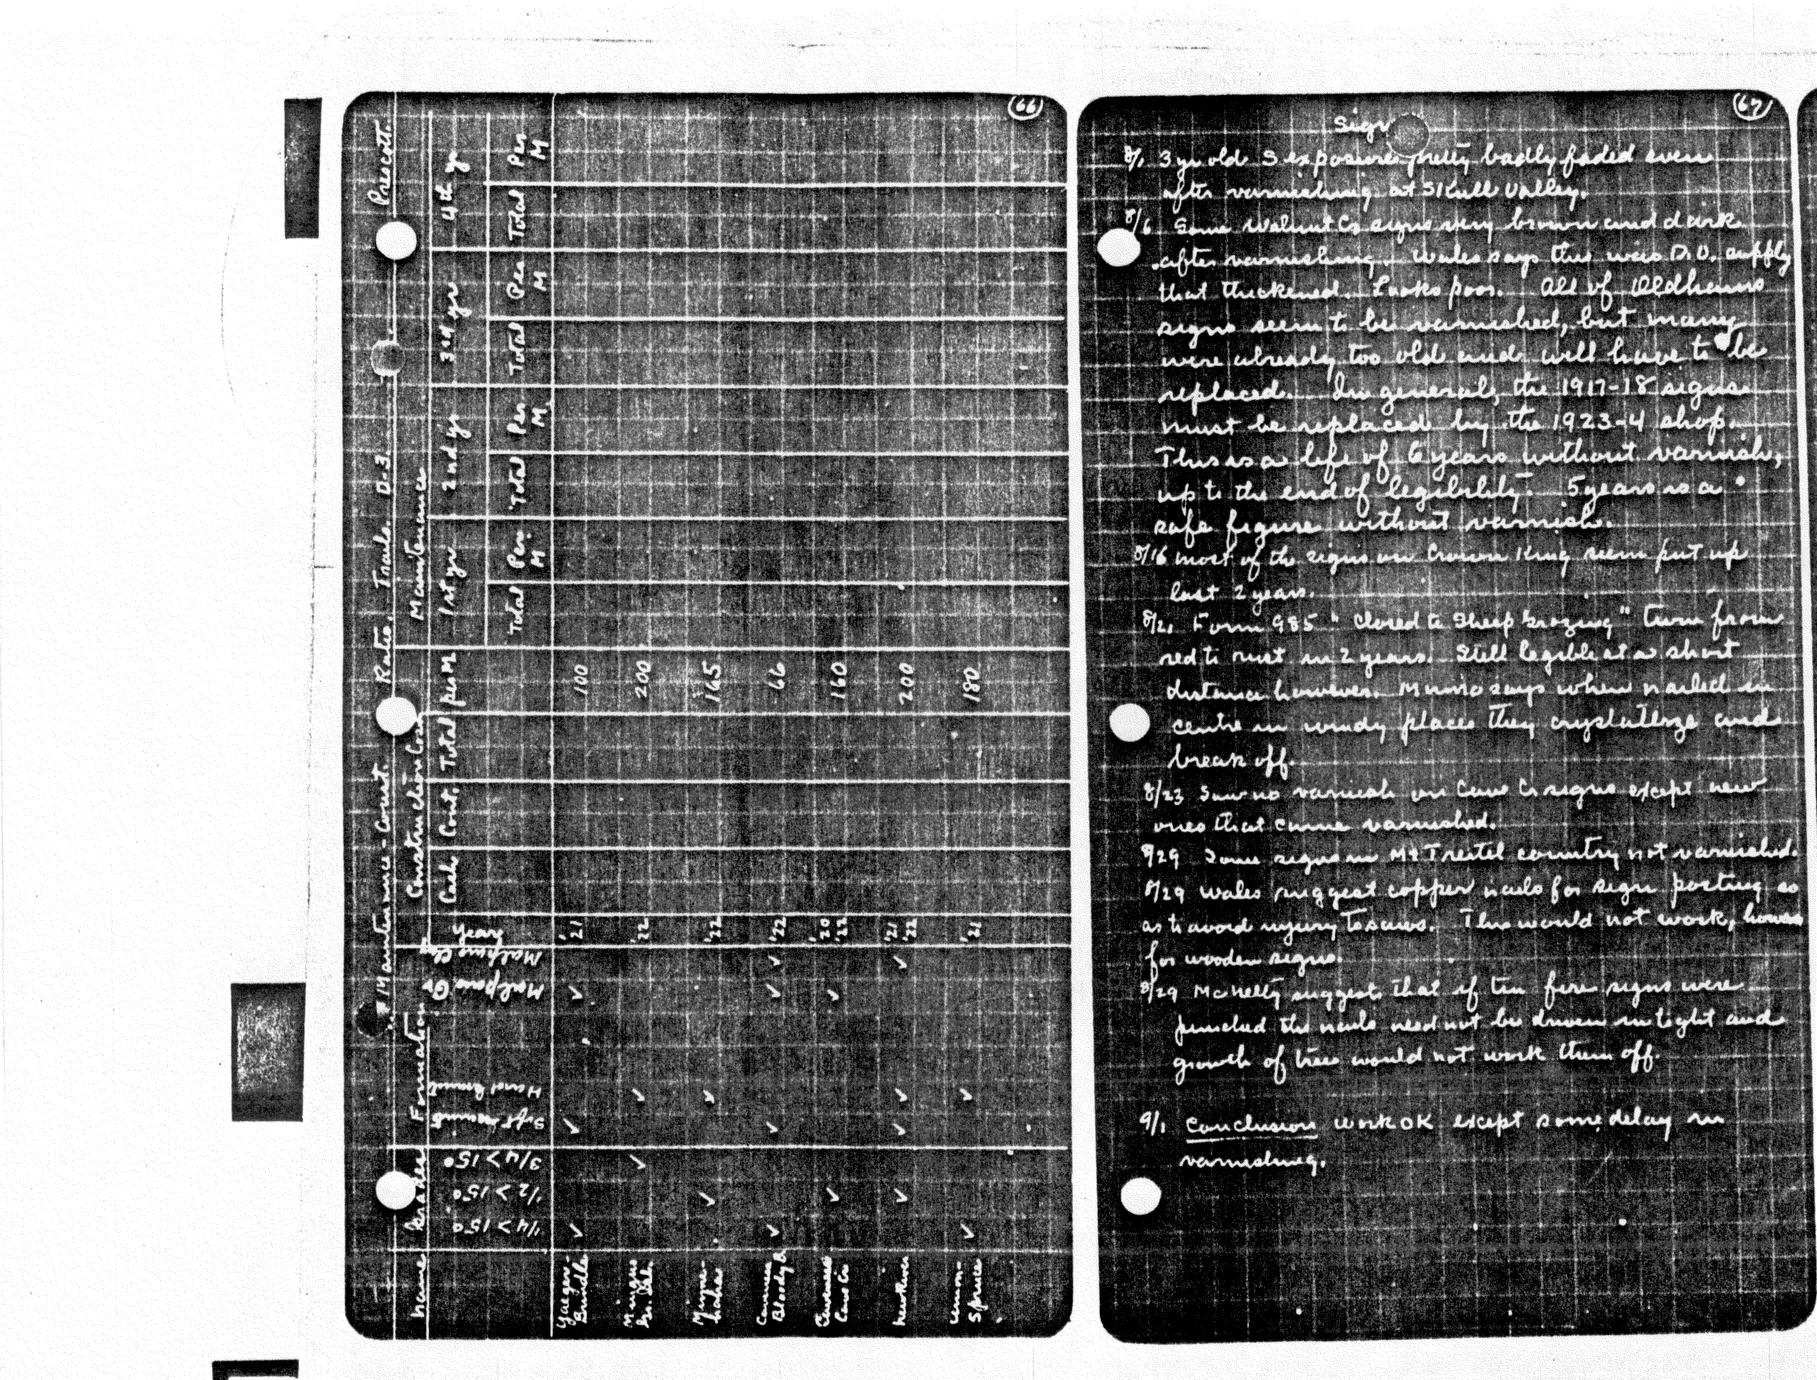 (66)
Maintenance - Const. Ratio. Trails. D.3. Prescott.
Name Grades Formation Construction Cost Maintenance
1st yr 2nd yr 3rd yr 4th yr
1/4 > 15° 1/2 > 15° 3/4 > 15° Malpais Gr Malpais Year Cash Cont. Total per M Total Per M Total Per M. Total Per M Total Per M
Yaeger Brindle ✓ ✓ ✓ '21 100
Mingus ✓ ✓ '22 200
Minne-haha ✓ ✓ '22 165
Bloody B. ✓ ✓ ✓ ✓ '22 66
Cave Cr ✓ ✓ '20 '22 160
✓ ✓ ✓ ✓ '21 '22 200
Spruce ✓ ✓ '21 180
(67)
Sign
8/1 3 yr old S exposure pretty badly faded even
after varnishing at Skull Valley.
8/6 Some Walnut Cr signs very brown and dark
after varnishing. Wales says this was D.O. supply
that thickened. Looks poor. All of Oldhams
signs seem to be varnished, but many
were already too old and will have to be
replaced. In general, the 1917-18 signs
must be replaced by the 1923-4 shop.
This is a life of 6 years without varnish,
up to the end of legibility. 5 years is a
safe figure without varnish.
8/16 most of the signs on Crown King seem put up
last 2 years.
8/21 Form 985 "Closed to Sheep Grazing" turn from
red to rust in 2 years. Still legible at a short
distance however. Munro says when nailed in
centre in windy places they crystallize and
break off.
8/23 Saw no varnish on Cave Cr signs except new
ones that came varnished.
8/29 Some signs in Mt Tritel country not varnished.
8/29 Wales suggest copper nails for sign posting so
as to avoid injury to saws. This would not work, however
for wooden signs.
8/29 McNelty suggests that if tin fire signs were
punched the nails need not be driven in tight and
growth of trees would not work them off.
9/1 Conclusion work OK except some delay in
varnishing.